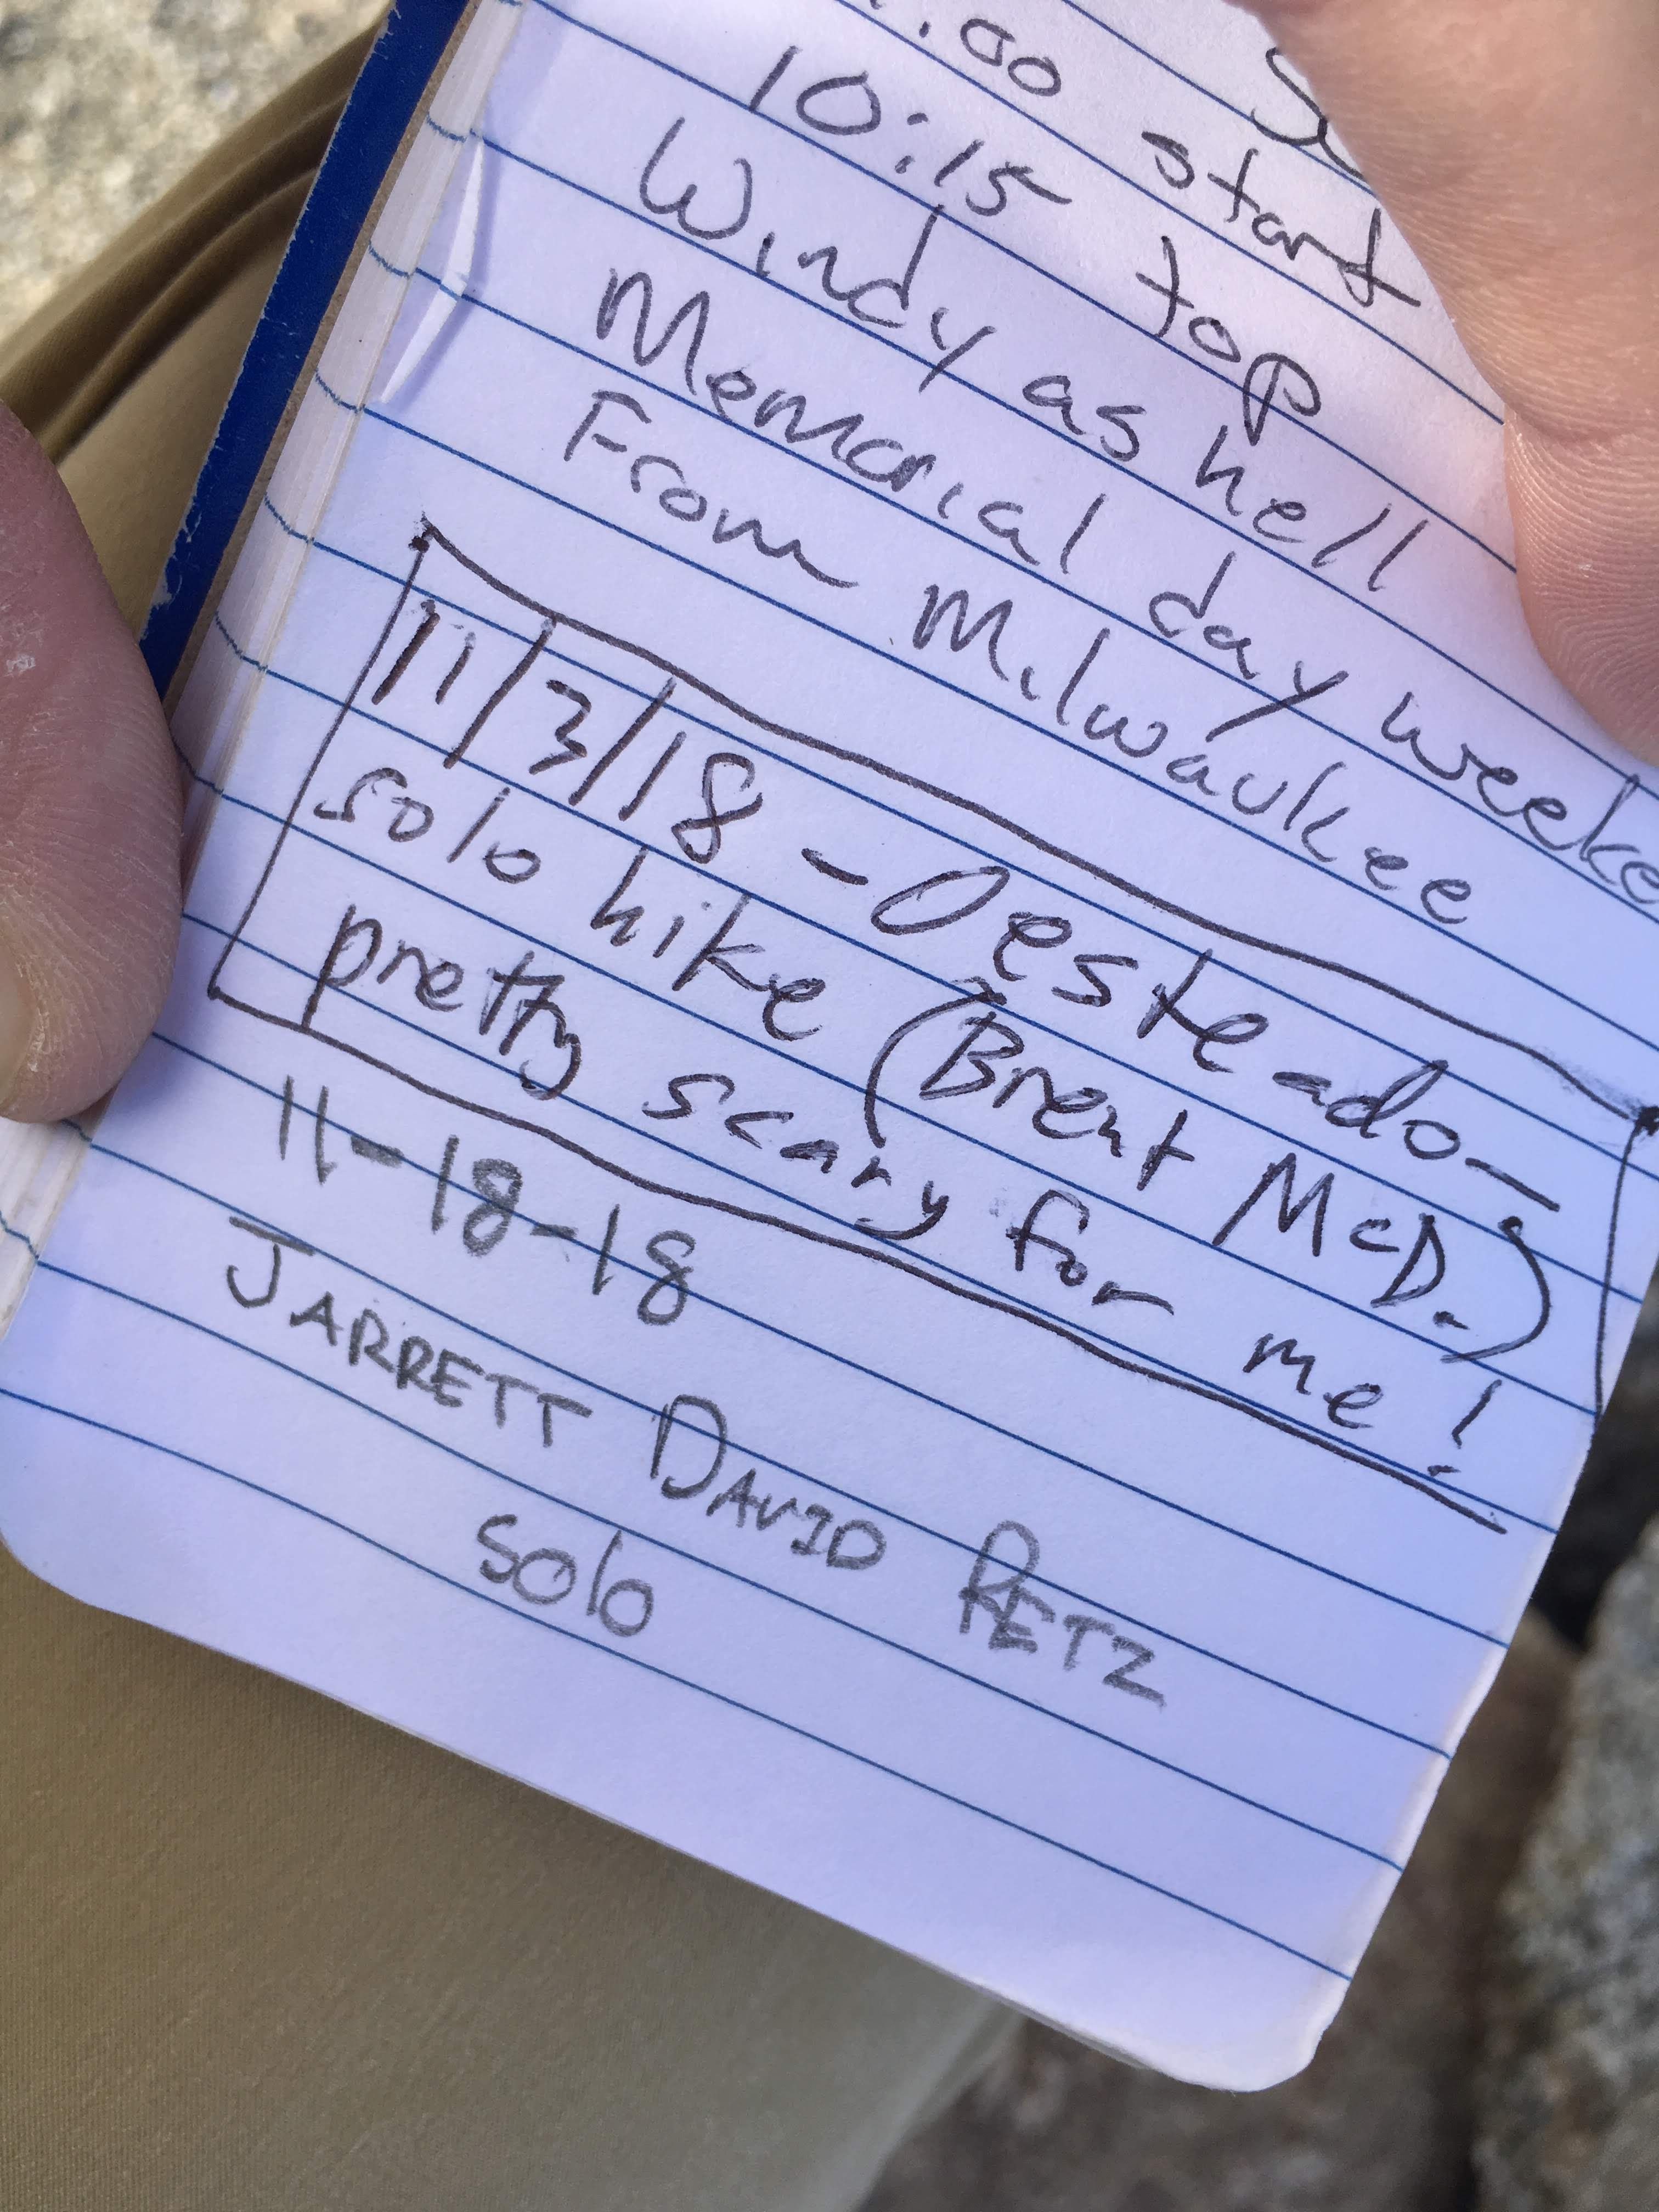 :00 start
10:15 top
Windy as hell
Memorial day weeke
From Milwaukee
11/3/18 - Oesteador
solo hike (Brent McD.)
pretty scary for me!
11-18-18
JARRETT DAVID RETZ
solo